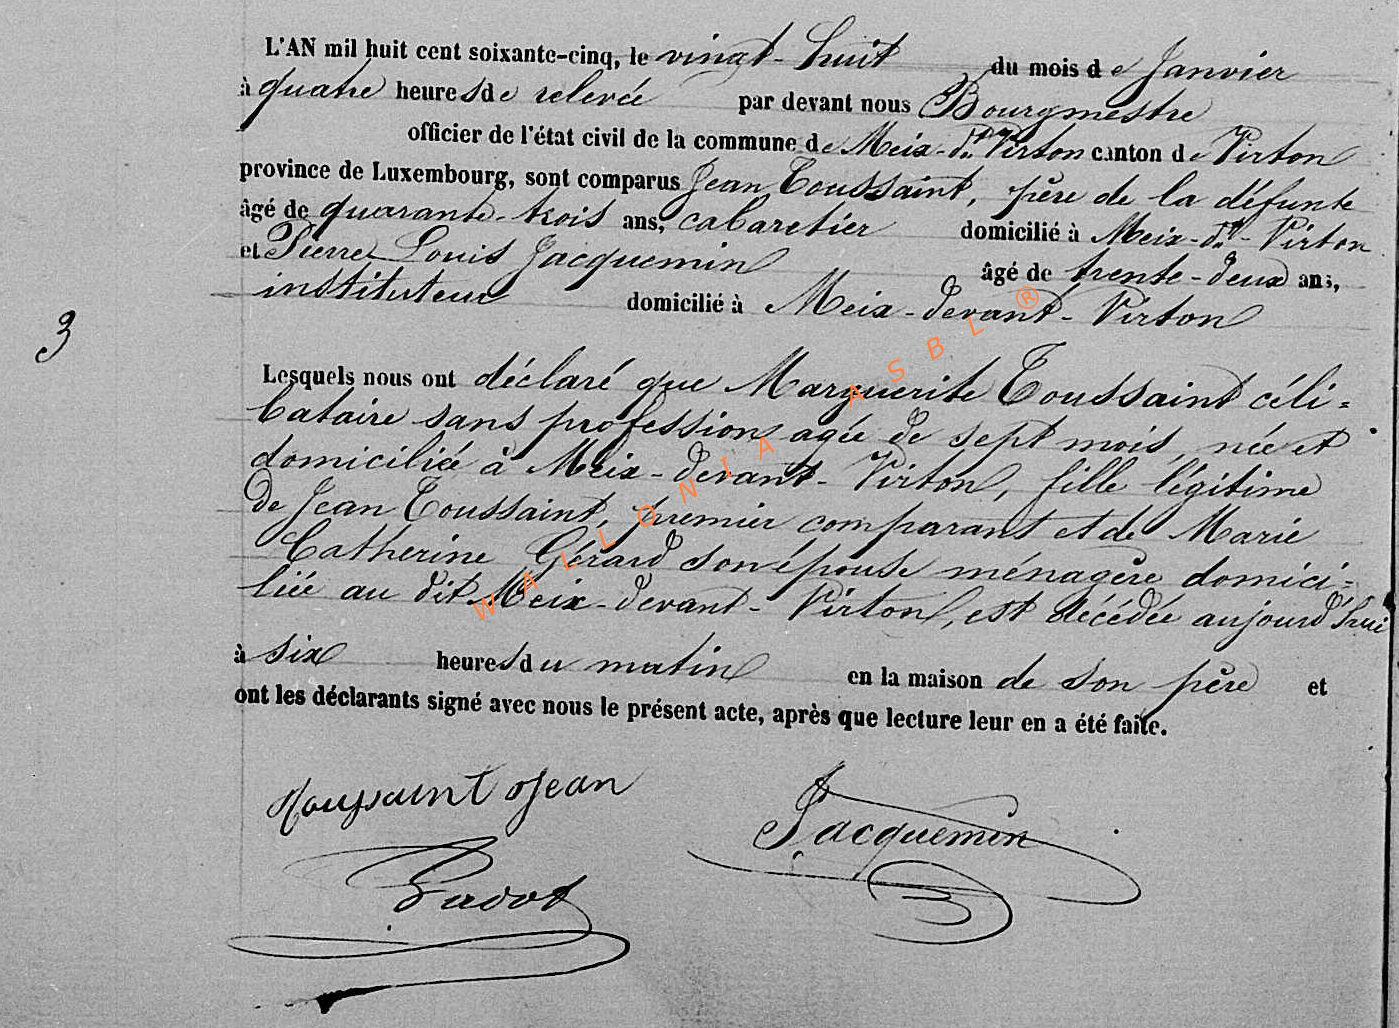 L'AN mil huit cent soixante-cinq, le vingt-huit du mois de Janvier
à quatre heures de relevée par devant nous Bourgmestre
officier de l'état civil de la commune de Meix-dt-Virton canton de Virton
province de Luxembourg, sont comparus Jean Toussaint, père de la défunte
âgé de quarante-trois ans, cabaretier domicilié à Meix-dt-Virton
et Pierre Louis Jacquemin âgé de trente-deux ans,
instituteur domicilié à Meix-devant-Virton
3
Lesquels nous ont déclaré que Marguerite Toussaint céli=
bataire sans profession agée de sept mois, née et
domiciliée à Meix-devant-Virton, fille légitime
de Jean Toussaint, premier comparant et de Marie
Catherine Gérard son épouse ménagère domici=
liée au dit Meix-devant-Virton, est décédée aujourd'hui
à six heures du matin en la maison de son père et
ont les déclarants signé avec nous le présent acte, après que lecture leur en a été faite.
Toussaint Jean
Jacquemin
WALLONIA ASBL ®